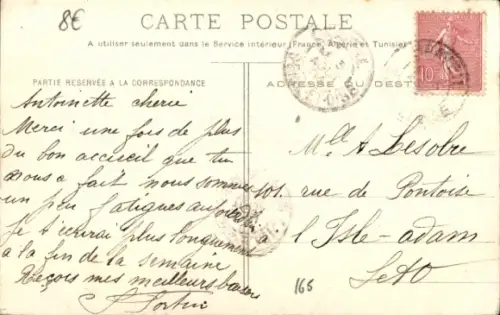 8€
CARTE POSTALE
A utiliser seulement dans le Service intérieur (France, Algérie et Tunisie)
PARTIE RÉSERVÉE A LA CORRESPONDANCE
ADRESSE DU DEST
10
Antoinette cherie
Merci une fois de plus
du bon accieuil que tu
nous a fait nous sommes
un peu fatigues aujourd
je t'ecrirai plus longuement
à la fin de la semaine
Reçois mes meilleurs baisers
Mlle A Lesobre
101 rue de Pontoise
à l'Isle-adam
S et O
165